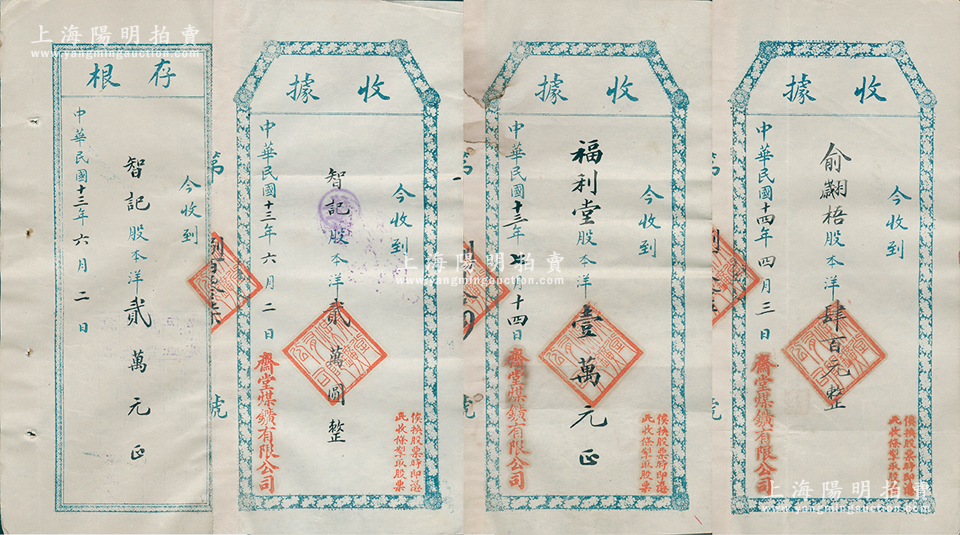 上海陽明拍賣
www.yangmingauction.com
存根
今收到
智記股本洋貳萬元正
中華民國十三年六月二日
第
號
收據
今收到
智記股本洋貳萬圓整
中華民國十三年六月二日
齋堂煤鑛有限公司
俟換股票時即憑
此收條掣取股票
第
號
收據
今收到
福利堂股本洋壹萬元正
中華民國十三年七月十四日
齋堂煤鑛有限公司
俟換股票時即憑
此收條掣取股票
上海陽明拍賣
www.yangmingauction.com
第
號
收據
今收到
俞翽梧股本洋肆百元整
中華民國十四年四月三日
齋堂煤鑛有限公司
俟換股票時即憑
此收條掣取股票
上海陽明拍賣
www.yangmingauction.com